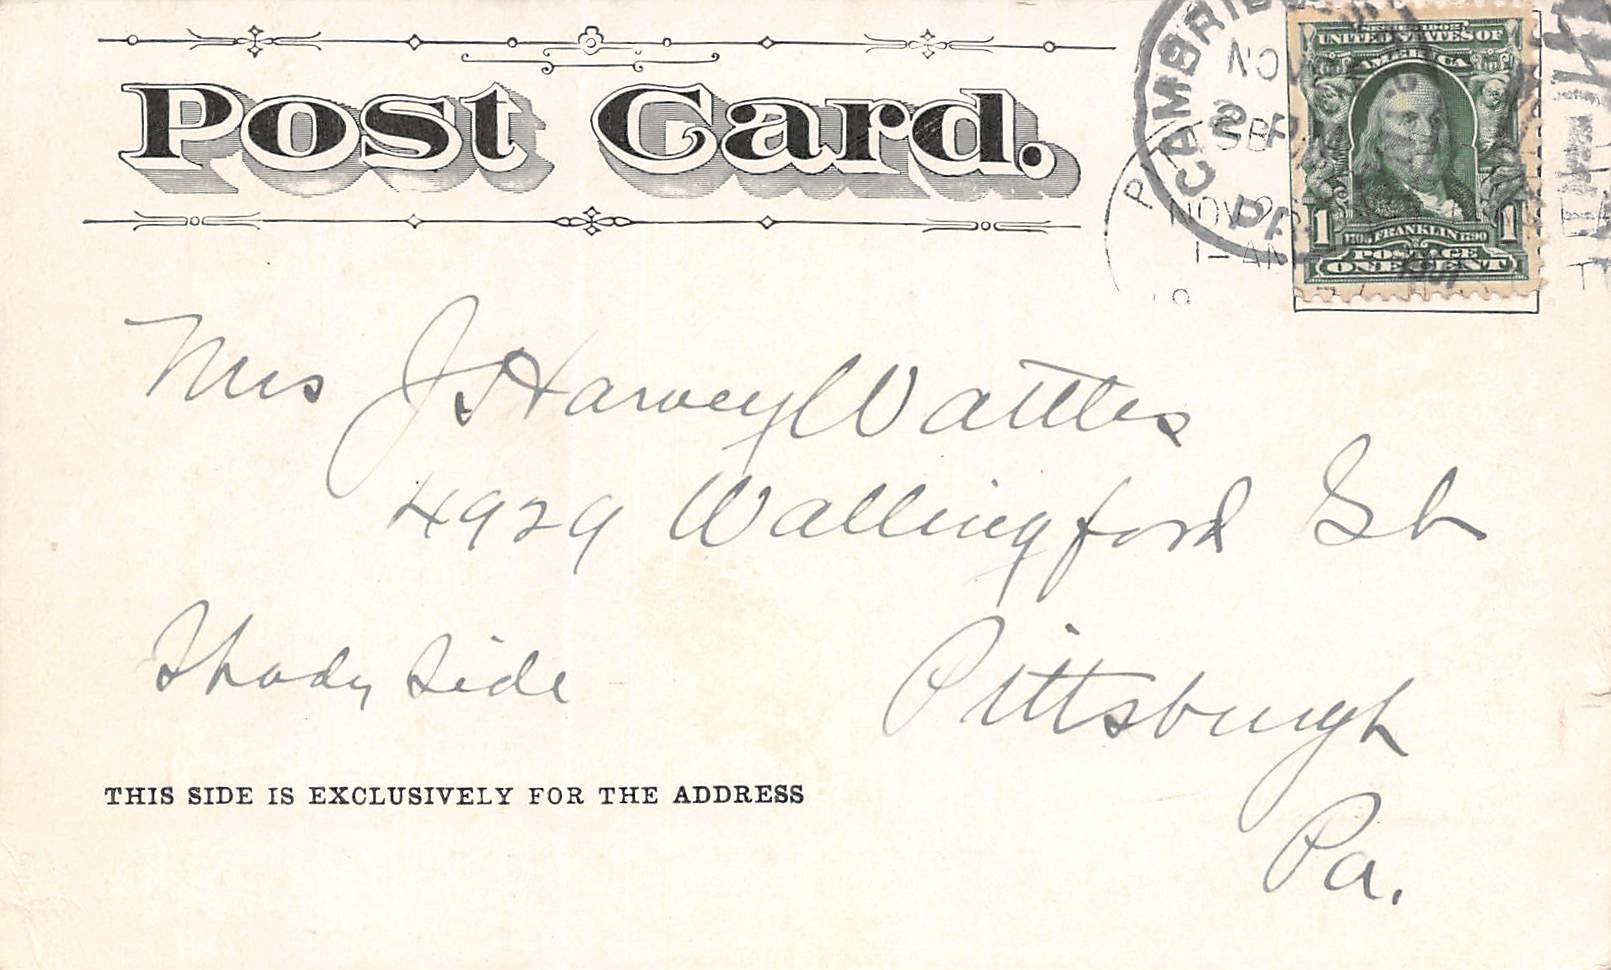 Post Card.
CAMBRID
NOV
PA
NOV 2
1-AM
SERIES 1902
UNITED STATES OF
AMERICA
1 1705 FRANKLIN 1790 1
POSTAGE
ONE CENT
Mrs J Harvey Wattles
4929 Wallingford St
Shady Side
Pittsburgh
Pa.
THIS SIDE IS EXCLUSIVELY FOR THE ADDRESS